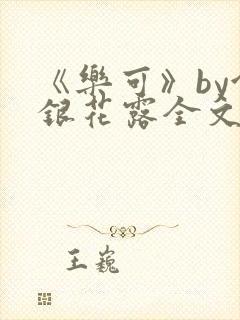 《樂可》by
銀花露全文
王巍